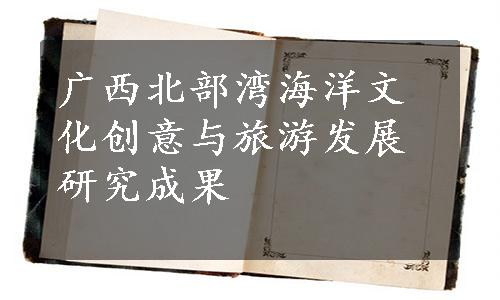 广西北部湾海洋文
化创意与旅游发展
研究成果